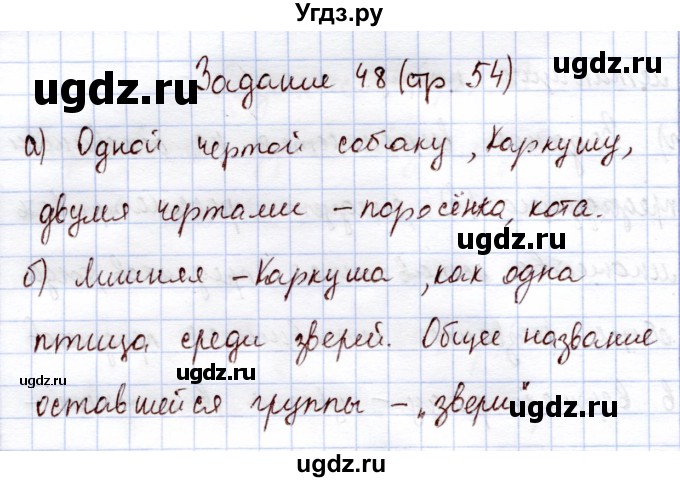 Угдз.ру
Задание 48 (стр. 54)
ugdz.ru ugdz.ru
а) Одной чертой собаку, Каркушу,
двумя чертами - поросёнка, кота.
ugdz.ru
б) Лишняя - Каркуша, как одна
птица среди зверей. Общее название
ugdz.ru ugdz.ru
оставшейся группы - „звери"
ugdz.ru
ugdz.ru